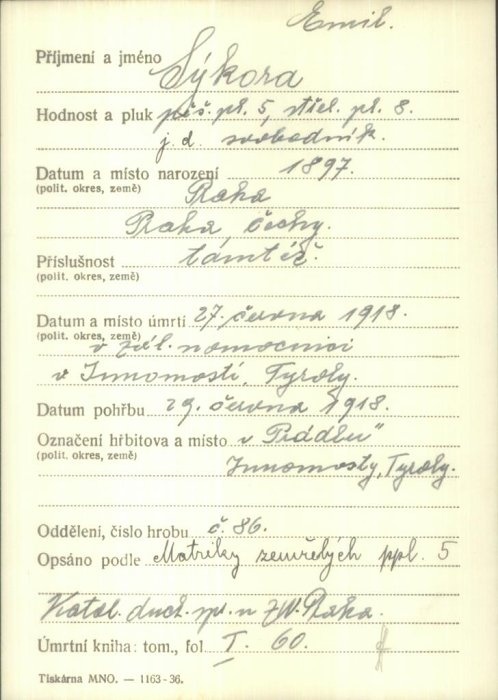 Emil.
Příjmení a jméno Sýkora
Hodnost a pluk pěš. pl. 5, střel. pl. 8.
j. d. svobodník.
Datum a místo narození 1897.
(polit. okres, země) Praha
Praha, Čechy.
Příslušnost tamtéž.
(polit. okres, země)
Datum a místo úmrtí 27. června 1918.
(polit. okres, země) v zál. nemocnici
v Innomostí, Tyroly.
Datum pohřbu 29. června 1918.
Označení hřbitova a místo v "Prádlu"
(polit. okres, země)
Innomosty, Tyroly.
Oddělení, číslo hrobu č. 86.
Opsáno podle Matriky zemřelých ppl. 5
Katol. duch. spr. u ZVV. Praha.
Úmrtní kniha: tom., fol I. 60.
Tiskárna MNO. — 1163-36.